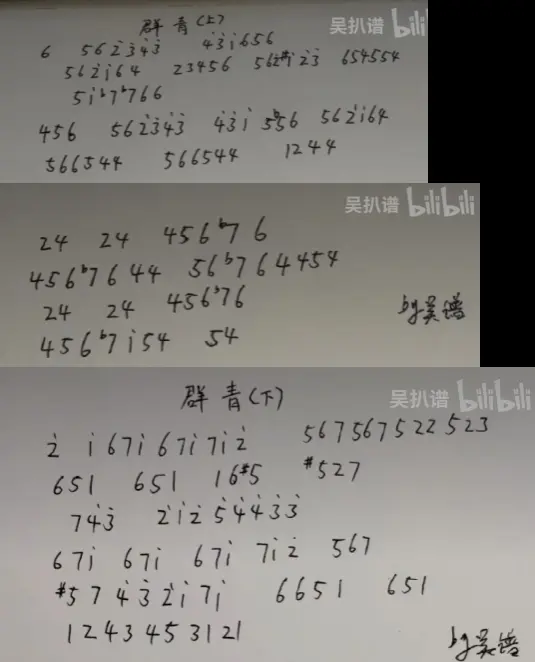 群青(上)
吴扒谱 bilibili
6 562̇3̇4̇3̇ 4̇3̇1̇656
562̇1̇64 23456 562̇#1̇2̇3̇ 654554
51̇b7b766
456 562̇3̇4̇3̇ 4̇3̇1̇ 5b56 562̇1̇64
566544 566544 1244
吴扒谱 bilibili
24 24 456b76
456b7644 56b764454
24 24 456b76
by吴谱
456b71̇54 54
群青(下)
吴扒谱 bilibili
2̇ 1̇671̇671̇71̇2̇ 567567522523
651 651 16#5 #527
74̇3̇ 2̇1̇2̇5̇4̇4̇3̇3̇
671̇ 671̇ 671̇ 71̇2̇ 567
#574̇3̇2̇1̇71̇ 6651 651
1243453121
by吴谱